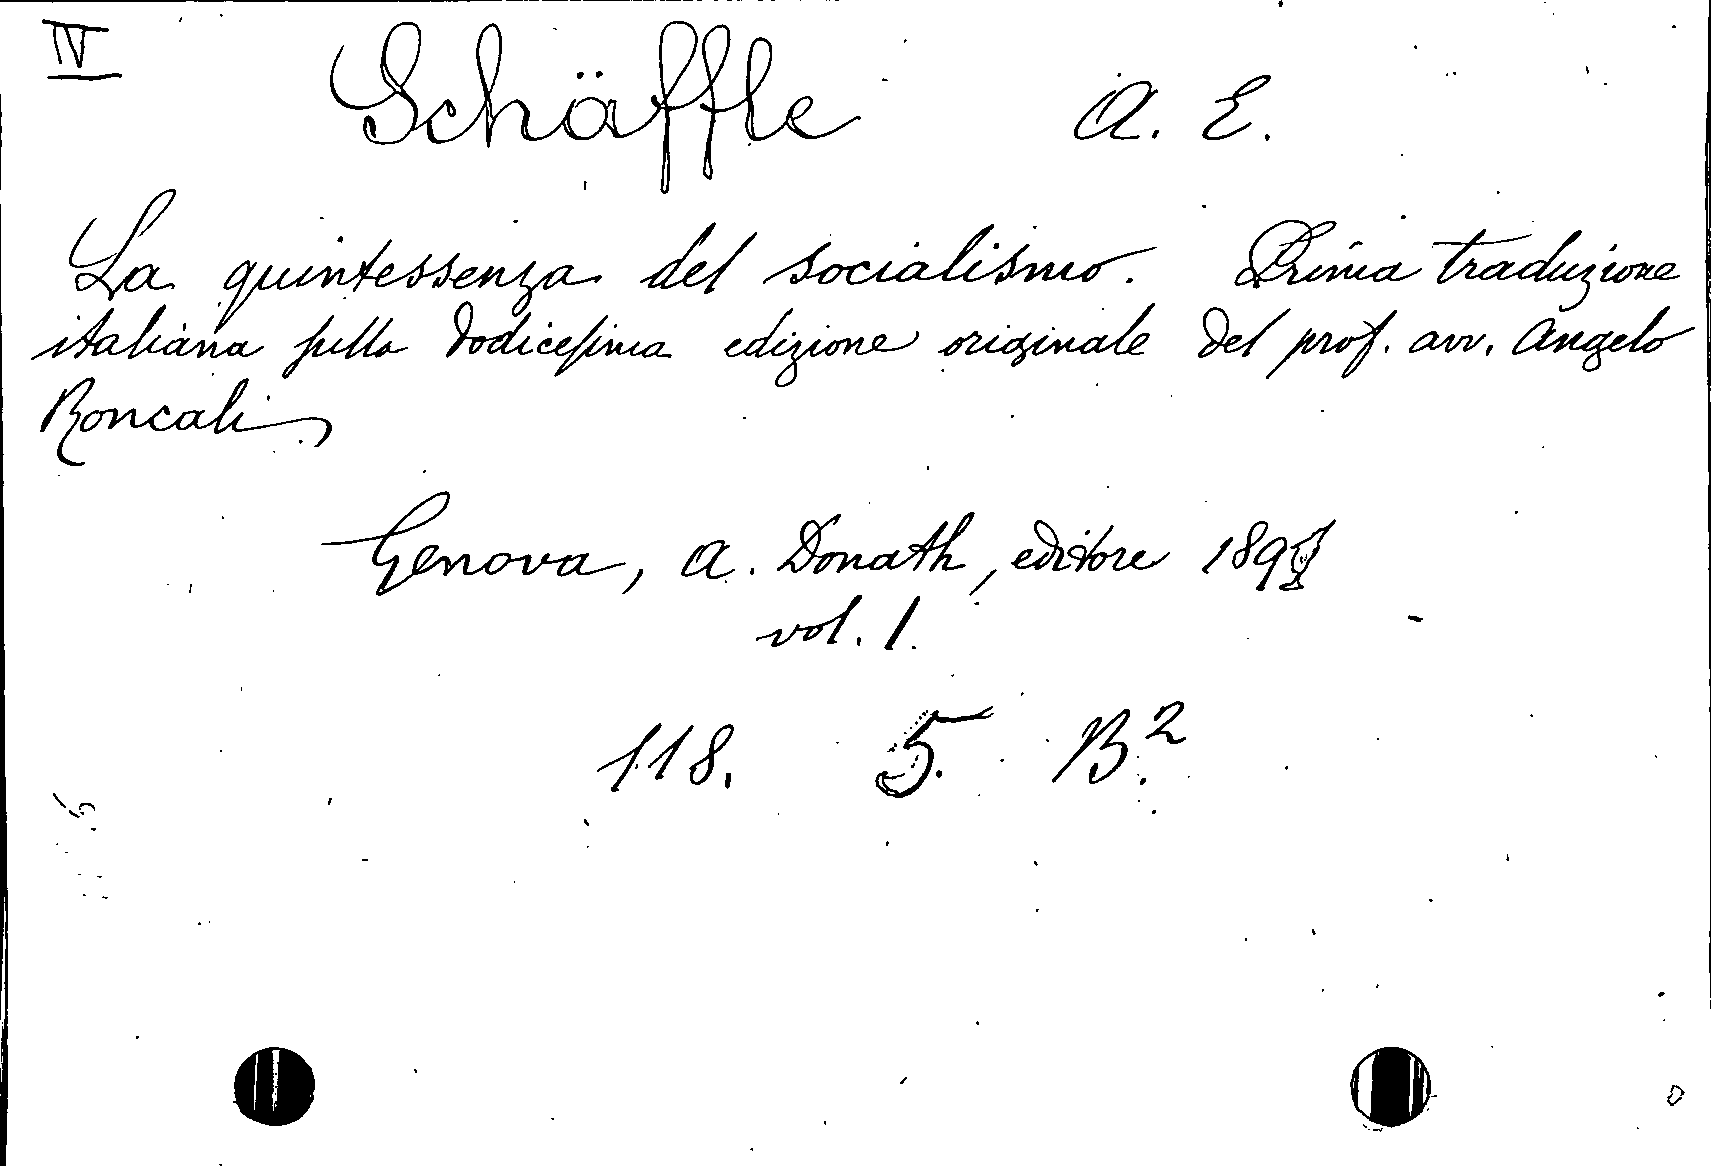 IV
Schäffle A. E.
La quintessenza del socialismo. Prima traduzione
italiana sulla dodicesima edizione originale del prof. avv. Angelo
Roncali
Genova, A. Donath, editore
vol. 1.
118. 5. B.²